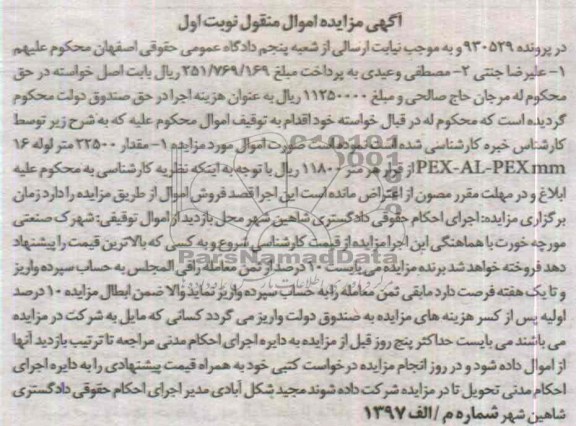 آگهی مزایده اموال منقول نوبت اول
در پرونده ۹۳۰۵۲۹ و به موجب نیابت ارسالی از شعبه پنجم دادگاه عمومی حقوقی اصفهان محکوم علیهم
۱- علیرضا جنتی ۲- مصطفی وعیدی به پرداخت مبلغ ۲۵۱/۷۶۹/۱۶۹ ریال بابت اصل خواسته در حق
محکوم له مرجان حاج صالحی و مبلغ ۱۱۲۵۰۰۰۰ ریال به عنوان هزینه اجرا در حق صندوق دولت محکوم
گردیده است که محکوم له در قبال خواسته خود اقدام به توقیف اموال محکوم علیه که به شرح زیر توسط
کارشناس خبره کارشناسی شده است نموده است صورت اموال مورد مزایده ۱- مقدار ۲۲۵۰۰ متر لوله ۱۶
PEX-AL-PEX mm از قرار هر متر ۱۱۸۰۰ ریال با توجه به اینکه نظریه کارشناسی به محکوم علیه
ابلاغ و در مهلت مقرر مصون از اعتراض مانده است این اجرا قصد فروش اموال از طریق مزایده را دارد زمان
برگزاری مزایده: اجرای احکام حقوقی دادگستری شاهین شهر محل بازدید از اموال توقیفی: شهرک صنعتی
مورچه خورت با هماهنگی این اجرا مزایده از قیمت کارشناسی شروع و به کسی که بالاترین قیمت را پیشنهاد
دهد فروخته خواهد شد برنده مزایده می بایست ۱۰ درصد از ثمن معامله را فی المجلس به حساب سپرده واریز
و تا یک هفته فرصت دارد مابقی ثمن معامله را به حساب سپرده واریز نماید والا ضمن ابطال مزایده ۱۰ درصد
اولیه پس از کسر هزینه های مزایده به صندوق دولت واریز می گردد کسانی که مایل به شرکت در مزایده
می باشند می بایست حداکثر پنج روز قبل از مزایده به دایره اجرای احکام مدنی مراجعه تا ترتیب بازدید آنها
از اموال داده شود و در روز انجام مزایده درخواست کتبی خود به همراه قیمت پیشنهادی را به دایره اجرای
احکام مدنی تحویل تا در مزایده شرکت داده شوند مجید شکل آبادی مدیر اجرای احکام حقوقی دادگستری
شاهین شهر شماره م/الف ۱۳۹۷
ParsNamadData